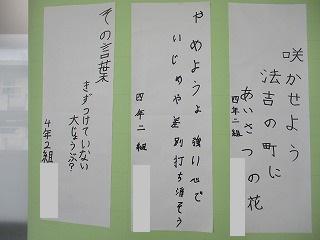 咲かせよう
法吉の町に
あいさつの花
四年二組
やめようよ 強い心で
いじめや差別打ち消そう
四年二組
その言葉
きずつけていない
大じょうぶ?
4年2組